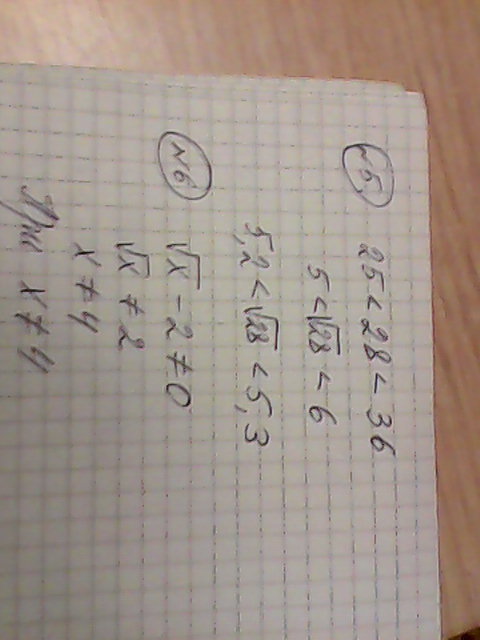 №5
25 < 28 < 36
5 < √28 < 6
5,2 < √28 < 5,3
№6
√x - 2 ≠ 0
√x ≠ 2
x ≠ 4
При x ≠ 4